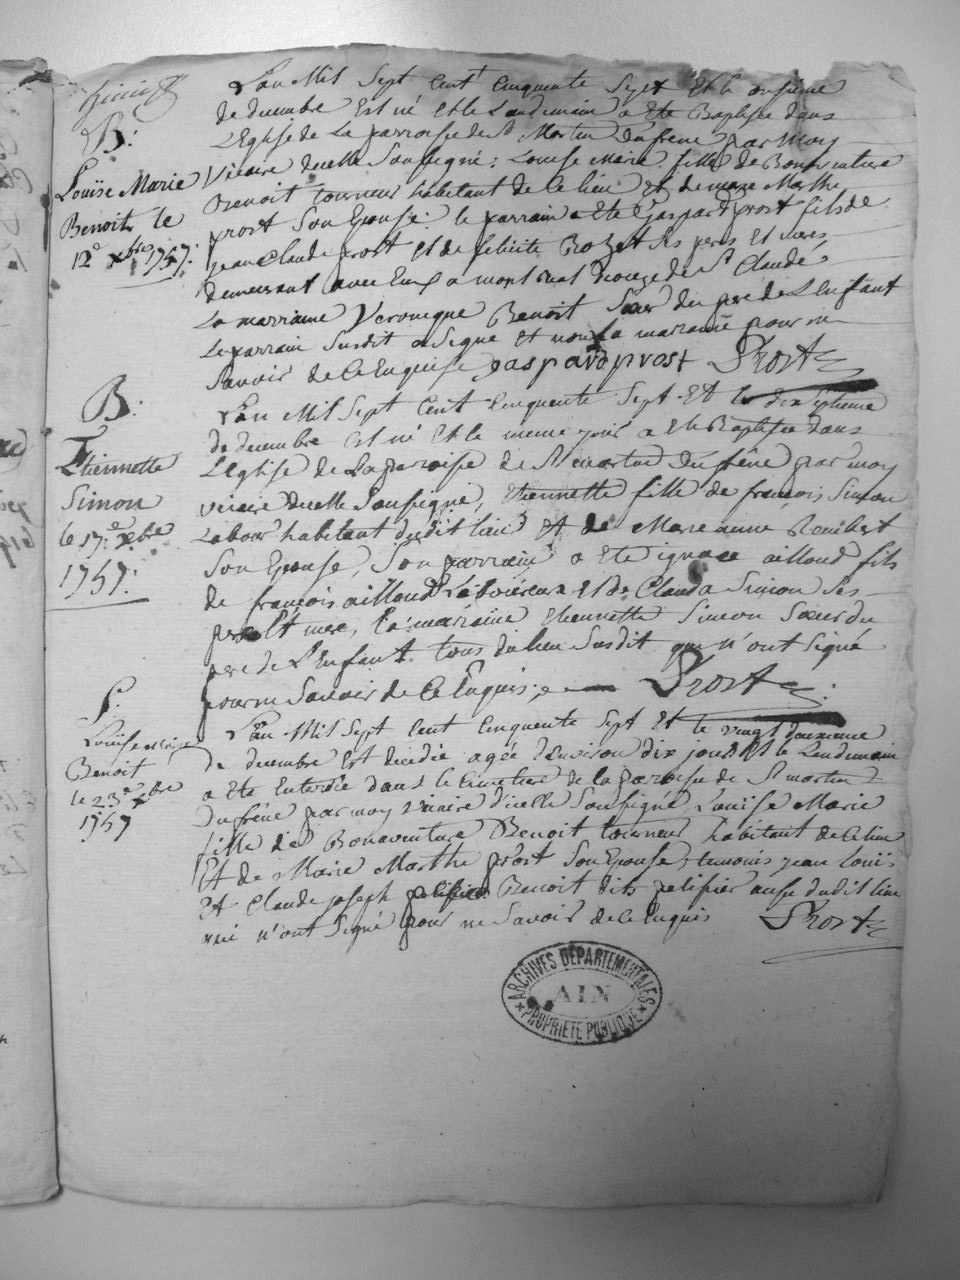 B.
Louise Marie
Benoit le
12e xbre 1757.
L'an Mil Sept Cent Cinquante Sept Et le onsieme
de decembre Est né et le Lendemain a Eté Baptisée dans
L'Eglise de La parroisse de St Martin Dufrêne par moy
Vicaire d'icelle Soussigné: Louise Marie fille de Bonaventure
Benoit tourneur habitant de Ce lieu Et de marie Marthe
prost Son Epouse: le parrain a Eté Gaspard prost fils de
jean Claude prost Et de felicité Rozet Ses peres Et meres
demeurant avec Eux a diocese de St Claude
La marraine Veronique Benoit Sœur du pere de L'Enfant
Le parrain Susdit a Signé Et non La marraine pour ne
Savoir de Ce Enquise gaspard prost Prost
B.
Ethiennette
Simon
le 17e xbre
1757.
L'an Mil Sept Cent Cinquante Sept Et le dix Septieme
de decembre Est né Et le meme jour a Eté Baptisée dans
L'Eglise de La paroisse de St martin Dufrêne par moy
vicaire d'icelle Soussigné, Ethiennette fille de françois Simon
Labour habitant dudit lieu Et de Marie anne Rembert
Son Epouse, Son parrain a Eté ignace ailloud fils
de françois ailloud Laboureur Et De Clauda Simon Ses
pere Et mere, la maraine Ethiennette Simon Sœur du
pere de L'Enfant tous du lieu Susdit qui n'ont Signé
pour ne Savoir de Ce Enquis Prost
S.
Louise marie
Benoit
le 23e xbre
1757
L'an Mil Sept Cent Cinquante Sept Et le vingt deuxieme
de decembre Est decedée agée d'environ dix jours Et le Lendemain
a Eté Enterrée dans le Cimetiere de la paroisse de St martin
Dufrêne par moy vicaire d'icelle Soussigné Louise Marie
fille de Bonaventure Benoit tourneur habitant de Ce lieu
Et de Marie Marthe prost Son Epouse, temoins jean Louis
Et Claude joseph Benoit dits pelissier aussy dudit lieu
qui n'ont Signé pour ne Savoir de Ce Enquis Prost
ARCHIVES DÉPARTEMENTALES
AIN
PROPRIÉTÉ PUBLIQUE